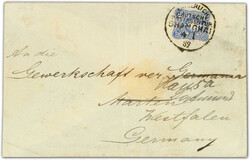 DEUTSCHE
SHANGHAI
4 1
89
An die
Gewerkschaft ver. Germania
Hansa
Marten Dortmund
Westfalen
Germany